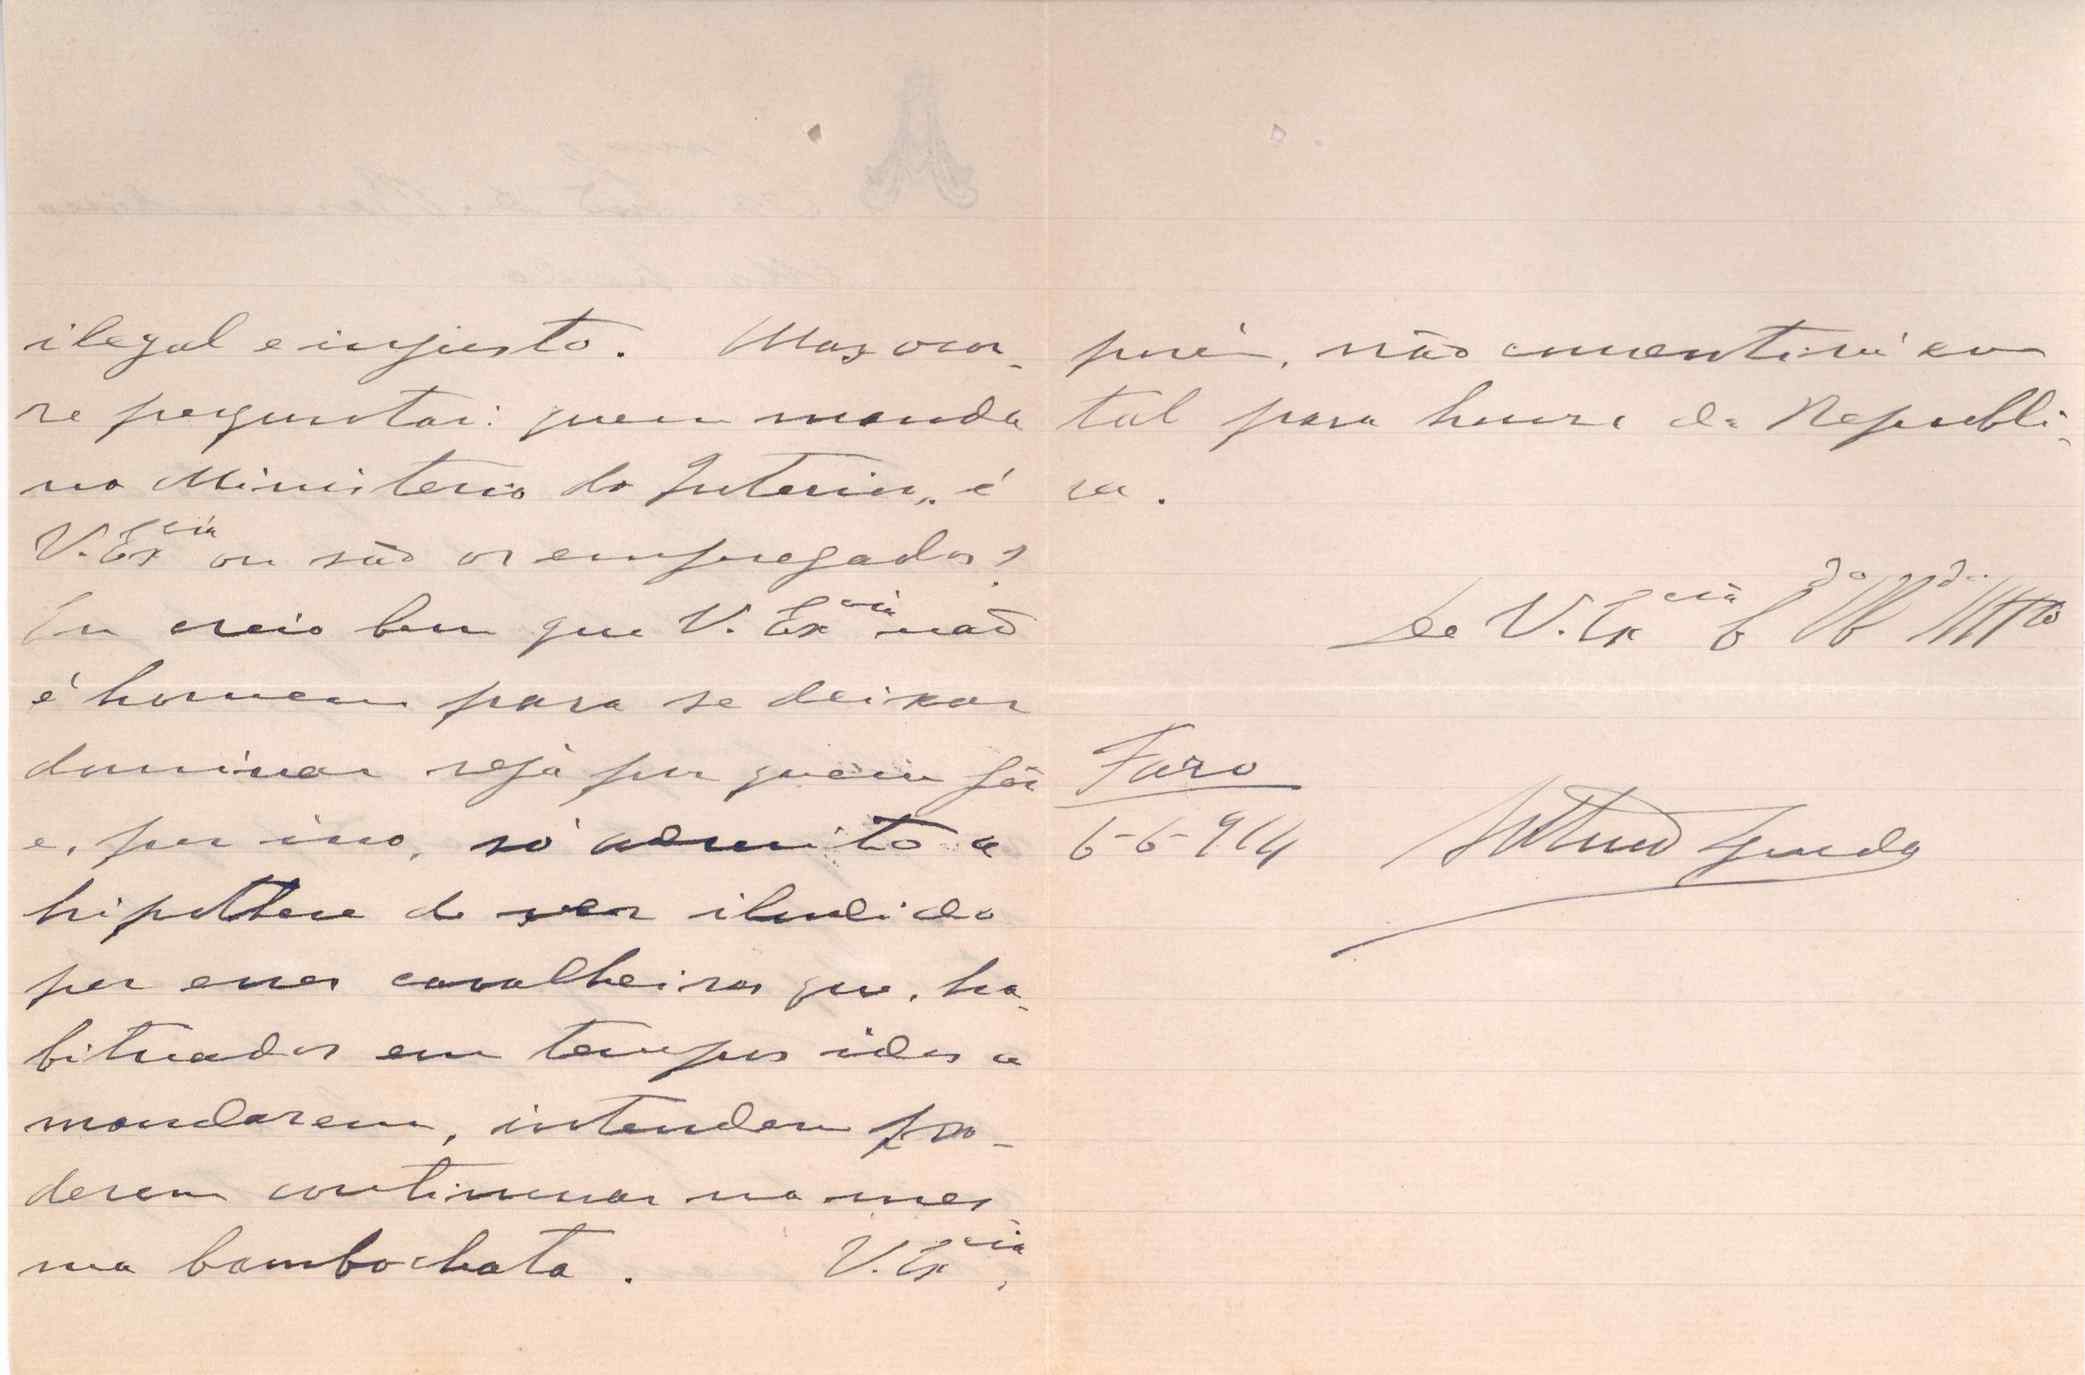 ilegal e injusto. Mas ocor-
re perguntar: quem manda
no Ministerio do Interior, é
V. Excia ou são os empregados?
Eu creio bem que V. Excia não
é homem para se deixar
dominar seja por quem fôr
e, por isso, só admito a
hipothese de ser iludido
por esses cavalheiros que, ha-
bituados em tempos idos a
mandarem, intendem po-
derem continuar na mes
ma bambochata. V. Excia,
porém, não consentirá em
tal para honra da Republi-
ca.
De V. Excia
Faro
6-6-914